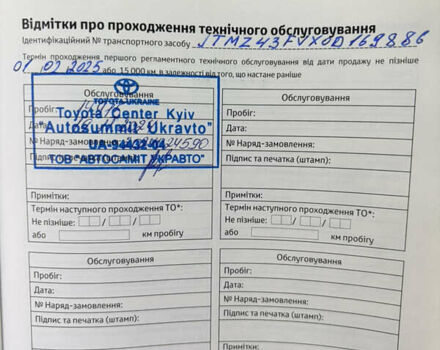 Відмітки про проходження технічного обслуговування
Ідентифікаційний № транспортного засобу JTMZ43FVX0D169886
Термін проходження першого регламентного технічного обслуговування від дати продажу не пізніше
01 02 2025 або 15 000 км, в залежності від того, що настане раніше
Обслуговування
TOYOTA UKRAINE
Пробіг:
Toyota Center Kyiv
Дата:
"Autosummit Ukravto"
№ Наряд-замовлення:
UA-94432-04
Підпис
ТОВ "АВТОСАМІТ УКРАВТО"
Примітки:
Термін наступного проходження ТО*:
Не пізніше: / /
або км пробігу
Обслуговування
Пробіг:
Дата:
№ Наряд-замовлення:
Підпис та печатка (штамп):
Примітки:
Термін наступного проходження ТО*:
Не пізніше: / /
або км пробігу
Обслуговування
Пробіг:
Дата:
№ Наряд-замовлення:
Підпис та печатка (штамп):
Обслуговування
Пробіг:
Дата:
№ Наряд-замовлення:
Підпис та печатка (штамп):